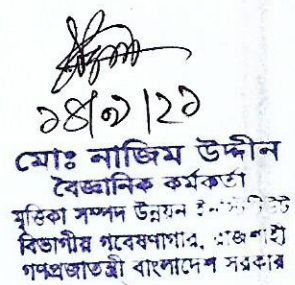 ১৪/৩/২১
মোঃ নাজিম উদ্দীন
বৈজ্ঞানিক কর্মকর্তা
মৃত্তিকা সম্পদ উন্নয়ন ইনস্টিটিউট
বিভাগীয় গবেষণাগার, রাজশাহী
গণপ্রজাতন্ত্রী বাংলাদেশ সরকার